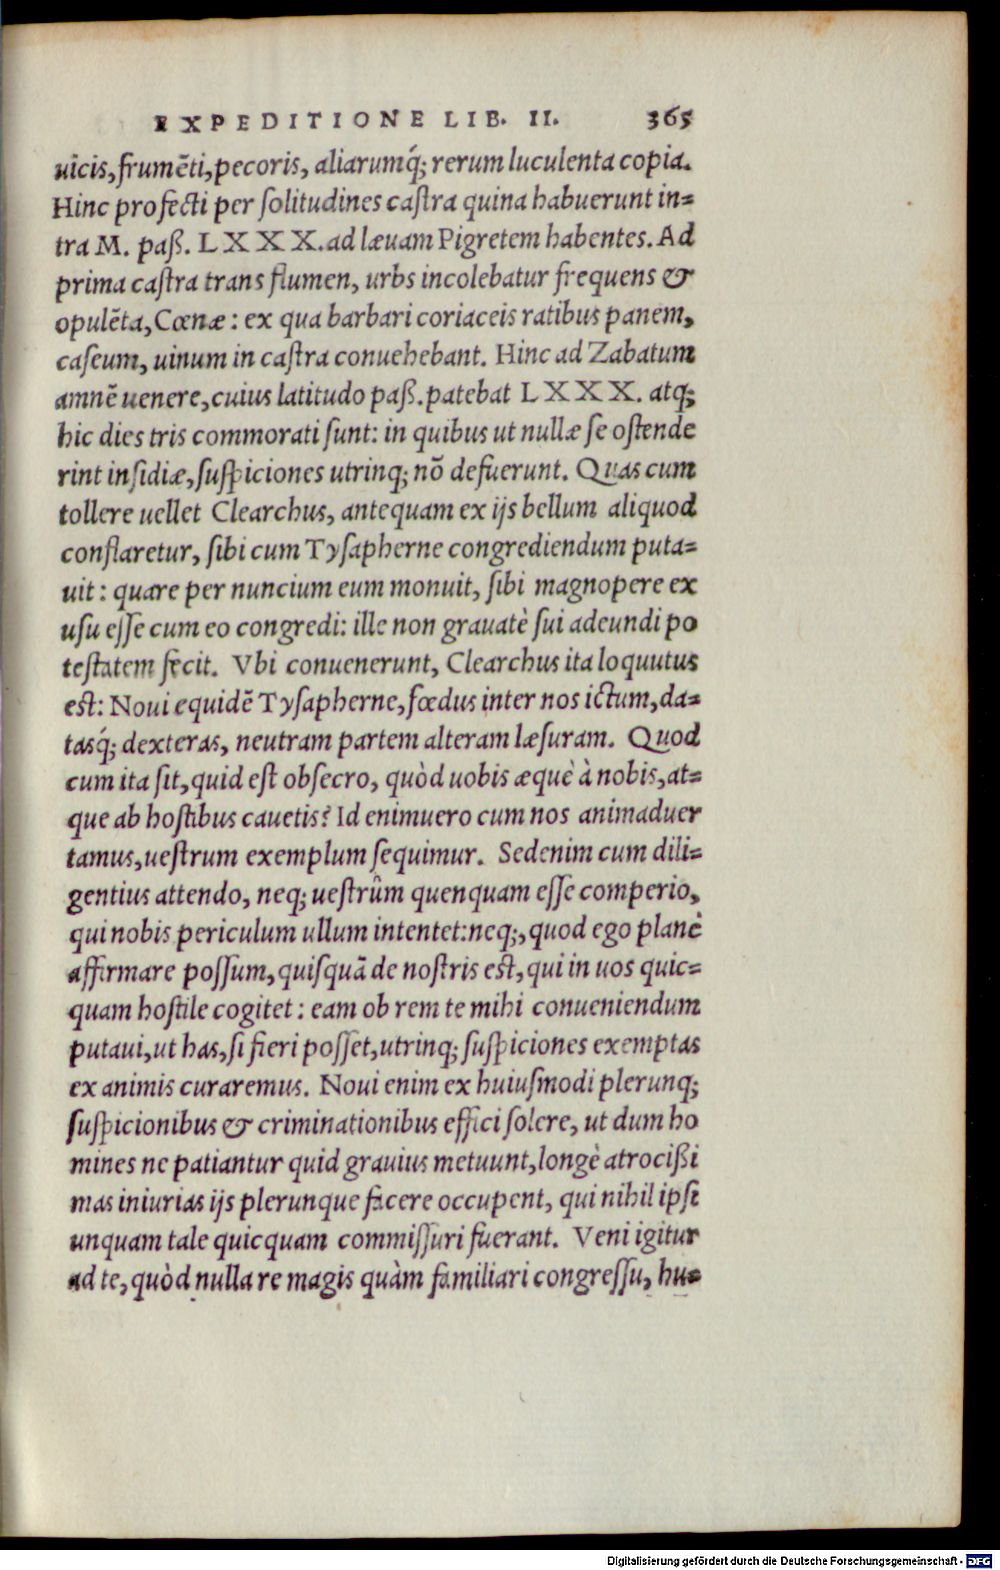 EXPEDITIONE LIB. II. 365
uicis, frumēti, pecoris, aliarumq́; rerum luculenta copia.
Hinc profecti per ſolitudines caſtra quina habuerunt in=
tra M. paß. LXXX. ad læuam Pigretem habentes. Ad
prima caſtra trans flumen, urbs incolebatur frequens &
opulēta, Cœnæ: ex qua barbari coriaceis ratibus panem,
caſeum, uinum in caſtra conuehebant. Hinc ad Zabatum
amnē uenere, cuius latitudo paß. patebat LXXX. atq;
hic dies tris commorati ſunt: in quibus ut nullæ ſe oſtende
rint inſidiæ, ſuſpiciones utrinq; nō defuerunt. Quas cum
tollere uellet Clearchus, antequam ex ijs bellum aliquod
conflaretur, ſibi cum Tyſapherne congrediendum puta=
uit: quare per nuncium eum monuit, ſibi magnopere ex
uſu eſſe cum eo congredi: ille non grauatè ſui adeundi po
teſtatem fecit. Vbi conuenerunt, Clearchus ita loquutus
eſt: Noui equidē Tyſapherne, fœdus inter nos ictum, da=
tasq́; dexteras, neutram partem alteram læſuram. Quod
cum ita ſit, quid eſt obſecro, quòd uobis æquè à nobis, at=
que ab hoſtibus cauetis? Id enimuero cum nos animaduer
tamus, ueſtrum exemplum ſequimur. Sedenim cum dili=
gentius attendo, neq; ueſtrûm quenquam eſſe comperio,
qui nobis periculum ullum intentet: neq;, quod ego planè
affirmare poſſum, quiſquā de noſtris eſt, qui in uos quic=
quam hoſtile cogitet: eam ob rem te mihi conueniendum
putaui, ut has, ſi fieri poſſet, utrinq; ſuſpiciones exemptas
ex animis curaremus. Noui enim ex huiuſmodi plerunq;
ſuſpicionibus & criminationibus effici ſolere, ut dum ho
mines ne patiantur quid grauius metuunt, longè atrocißi
mas iniurias ijs plerunque facere occupent, qui nihil ipſi
unquam tale quicquam commiſſuri fuerant. Veni igitur
ad te, quòd nulla re magis quàm familiari congreſſu, hu=
Digitalisierung gefördert durch die Deutsche Forschungsgemeinschaft - DFG